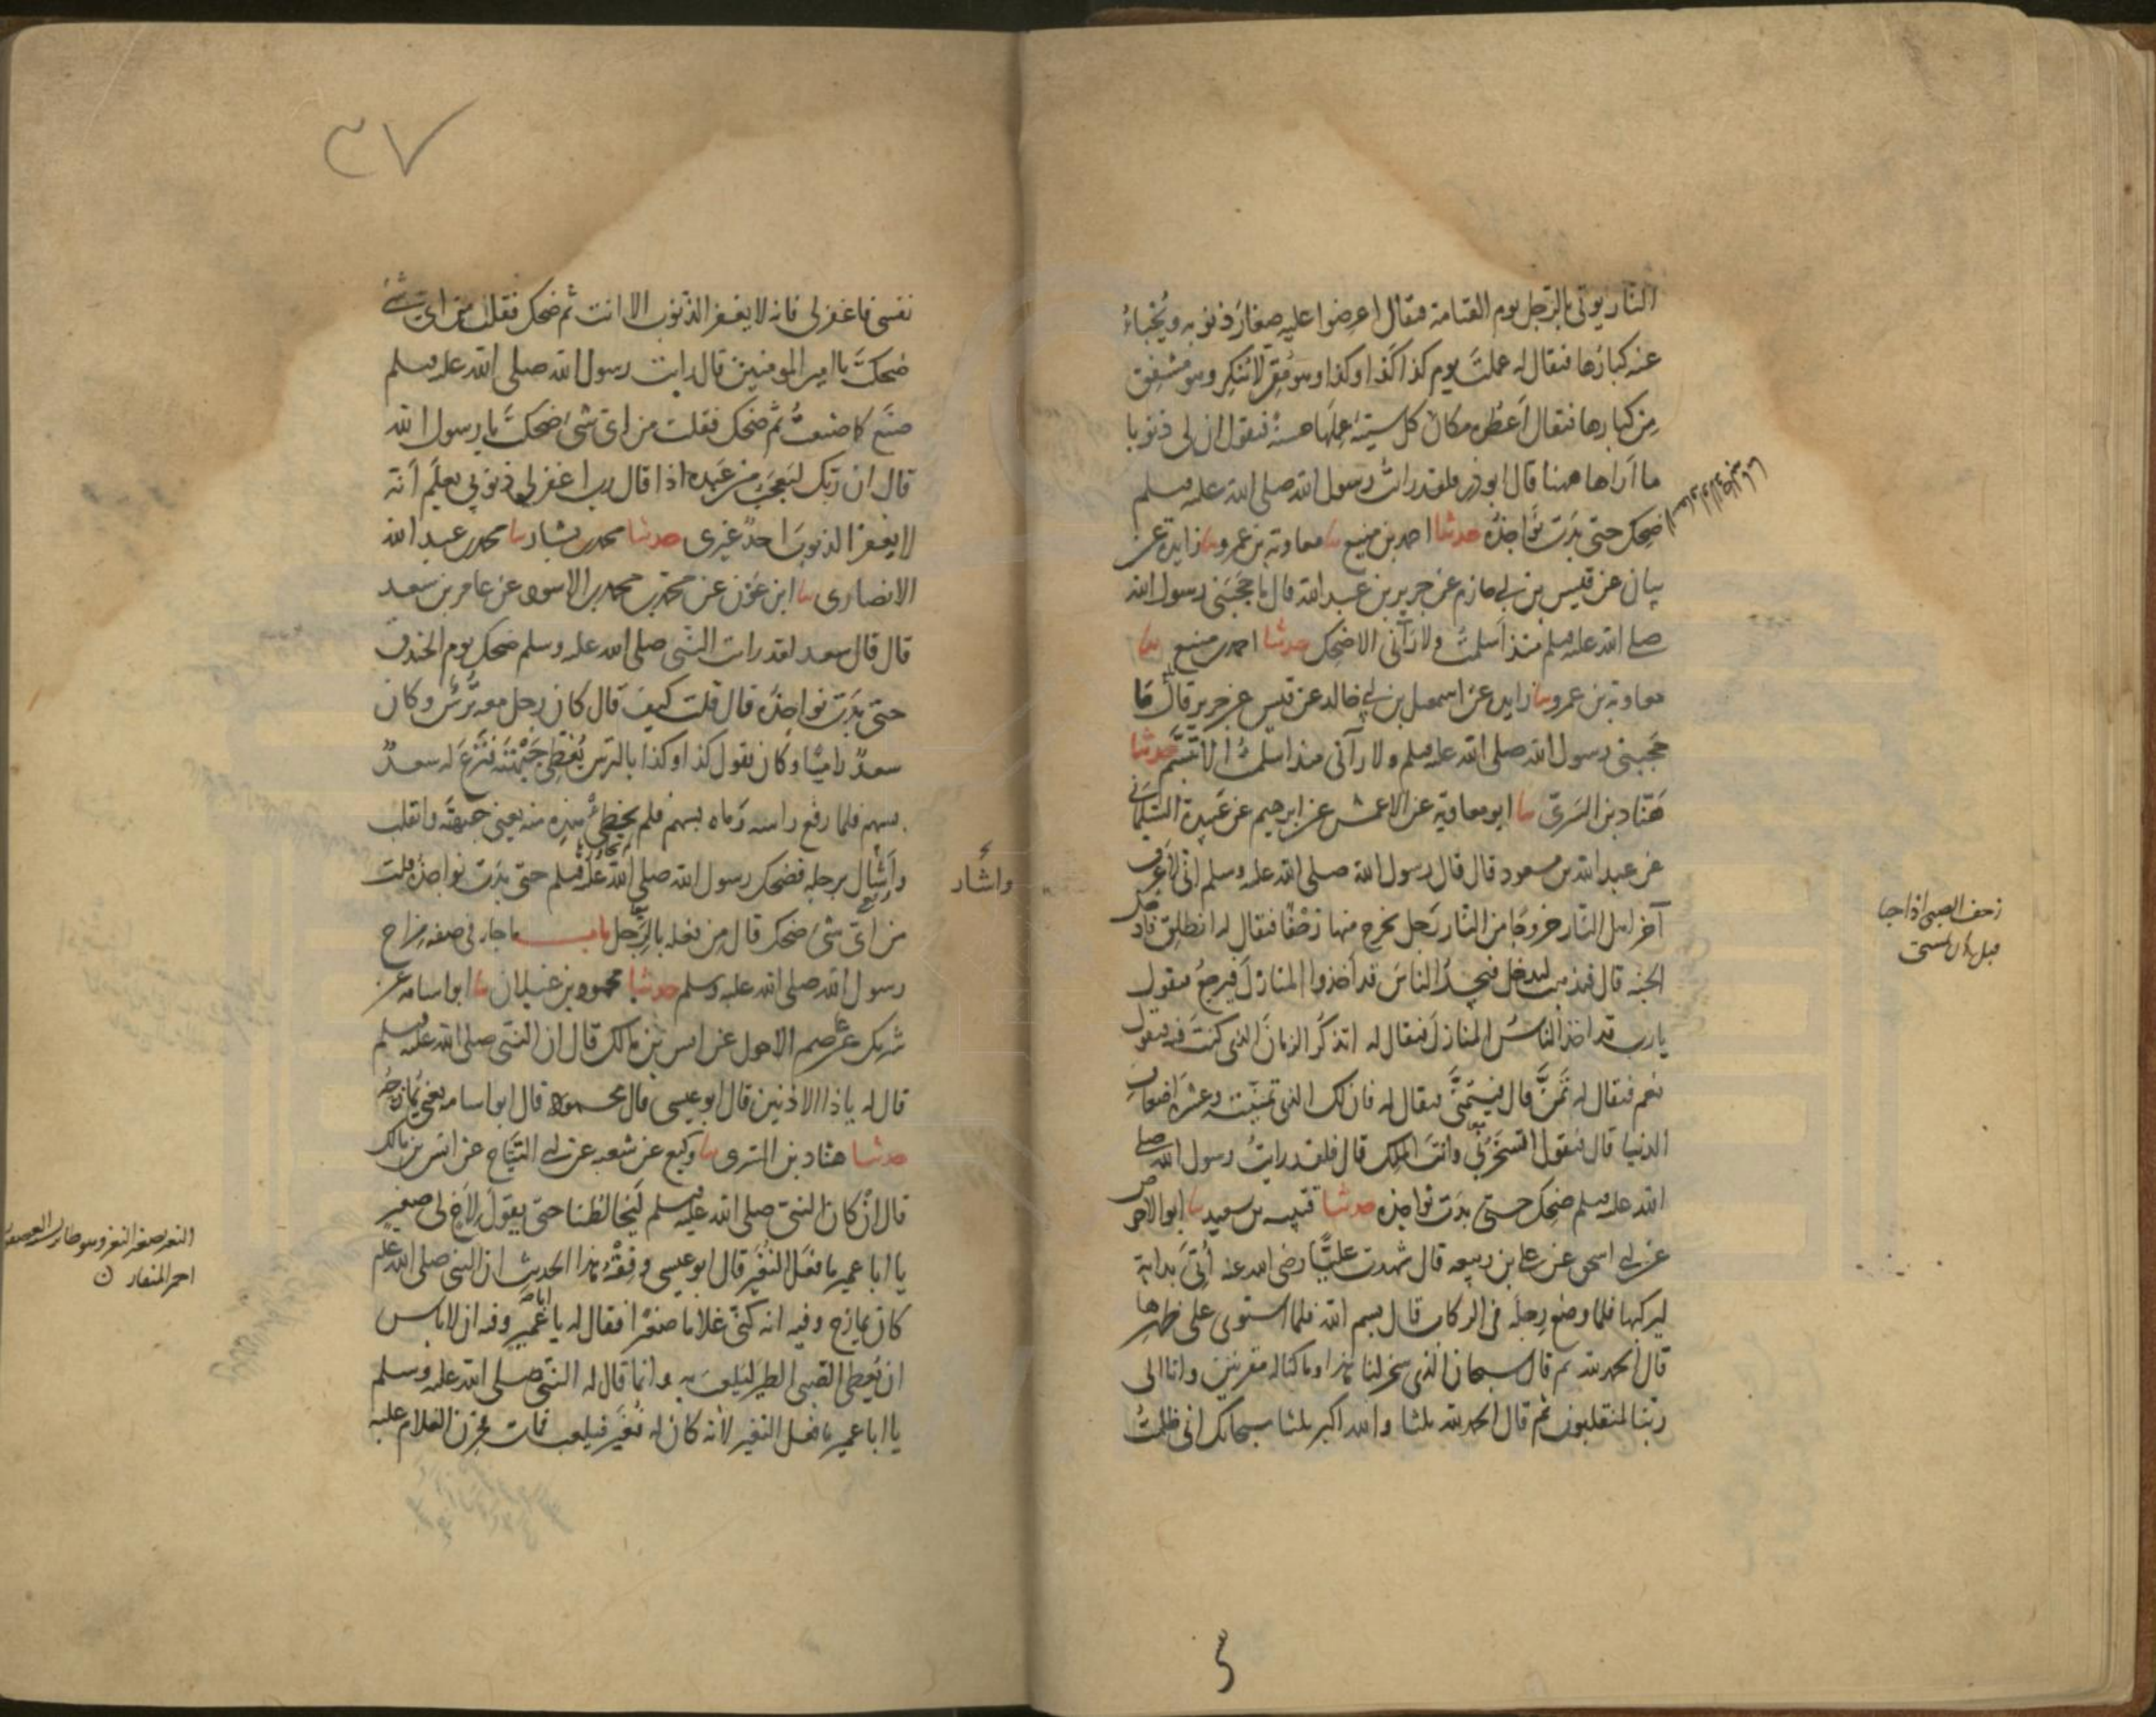 النار يوتى بالرجل يوم القيامة فيقال اعرضوا عليه صغار ذنوبه ويخباء
عنه كبارها فيقال له عملت يوم كذا كذا وكذا وهو مقر لا ينكر وهو مشفق
من كبارها فيقال اعطوه مكان كل سيئة عملها حسنة فيقول ان لي ذنوبا
ما اراها ههنا قال ابو ذر فلقد رايت رسول الله صلى الله عليه وسلم
ضحك حتى بدت نواجذه حدثنا احمد بن منيع نا معاوية بن عمرو نا زايدة عن
بيان عن قيس بن ابي حازم عن جرير بن عبد الله قال ما حجبني رسول الله
صلى الله عليه وسلم منذ اسلمت ولا رآني الا ضحك حدثنا احمد بن منيع نا
معاوية بن عمرو نا زايدة عن اسمعيل بن ابي خالد عن قيس عن جرير قال ما
حجبني رسول الله صلى الله عليه وسلم ولا رآني منذ اسلمت الا تبسم حدثنا
هناد بن السري نا ابو معاوية عن الاعمش عن ابرهيم عن عبيدة السلماني
عن عبد الله بن مسعود قال قال رسول الله صلى الله عليه وسلم اني لاعرف
آخر اهل النار خروجا من النار رجل يخرج منها زحفا فيقال له انطلق فادخل
الجنة قال فيذهب ليدخل فيجد الناس قد اخذوا المنازل فيرجع فيقول
يا رب قد اخذ الناس المنازل فيقال له اتذكر الزمان الذي كنت فيه فيقول
نعم فيقال له تمن قال فيتمنى فيقال له فان لك الذي تمنيت وعشرة اضعاف
الدنيا قال فيقول اتسخر بي وانت الملك قال فلقد رايت رسول الله صلى
الله عليه وسلم ضحك حتى بدت نواجذه حدثنا قتيبه بن سعيد نا ابو الاحوص
عن ابي اسحق عن علي بن ربيعه قال شهدت عليا رضي الله عنه اتي بدابة
ليركبها فلما وضع رجله في الركاب قال بسم الله فلما استوى على ظهرها
قال الحمد لله ثم قال سبحان الذي سخر لنا هذا وما كنا له مقرنين وانا الى
ربنا لمنقلبون ثم قال الحمد لله ثلثا والله اكبر ثلثا سبحانك اني ظلمت
زحف الصبي اذا حبا
قبل ان يمشي
٣٧
نفسي فاغفر لي فانه لا يغفر الذنوب الا انت ثم ضحك فقلت من اي شئ
ضحكت يا امير المومنين قال رايت رسول الله صلى الله عليه وسلم
صنع كما صنعت ثم ضحك فقلت من اي شئ ضحكت يا رسول الله
قال ان ربك ليعجب من عبده اذا قال رب اغفر لي ذنوبي يعلم انه
لا يغفر الذنوب احد غيري حدثنا محمد بن بشار نا محمد بن عبد الله
الانصاري نا ابن عون عن محمد بن محمد بن الاسود عن عامر بن سعد
قال قال سعد لقد رايت النبي صلى الله عليه وسلم ضحك يوم الخندق
حتى بدت نواجذه قال قلت كيف قال كان رجل معه ترس وكان
سعد راميا وكان يقول كذا وكذا بالترس يغطي جبهته فنزع له سعد
بسهم فلما رفع راسه رماه بسهم فلم يخطئ هذه منه يعني جبهته وانقلب
واشال برجله فضحك رسول الله صلى الله عليه وسلم حتى بدت نواجذه قلت
واشاد
من اي شئ ضحك قال من فعله بالرجل باب ما جاء في صفة مزاح
رسول الله صلى الله عليه وسلم حدثنا محمود بن غيلان نا ابو اسامه عن
شريك عن عاصم الاحول عن انس بن مالك قال ان النبي صلى الله عليه وسلم
قال له يا ذا الاذنين قال ابو عيسى قال محمود قال ابو اسامه يعني يمازحه
حدثنا هناد بن السري نا وكيع عن شعبه عن ابي التياح عن انس بن مالك
قال ان كان النبي صلى الله عليه وسلم ليخالطنا حتى يقول لاخ لي صغير
يا ابا عمير ما فعل النغير قال ابو عيسى وفقه هذا الحديث ان النبي صلى الله عليه
كان يمازح وفيه انه كنى غلاما صغيرا فقال له يا ابا عمير وفيه ان لا باس
ان يعطى الصبي الطير ليلعب به وانما قال له النبي صلى الله عليه وسلم
يا ابا عمير ما فعل النغير لانه كان له نغير فيلعب فمات فحزن الغلام عليه
احمر المنقار